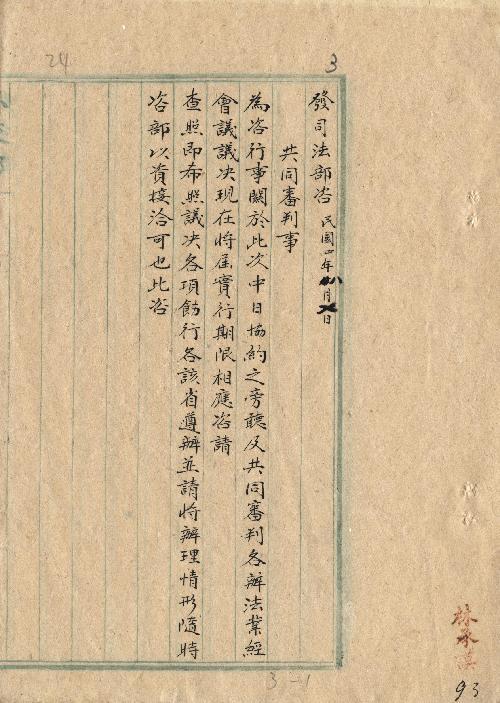 24
3
發司法部咨 民國四年八月 日
共同審判事
為咨行事關於此次中日協約之旁聽及共同審判各辦法業經
會議議决現在將屆實行期限相應咨請
查照即希照議决各項飭行各該省遵辦並請將辦理情形隨時
咨部以資接洽可也此咨
3-1
93